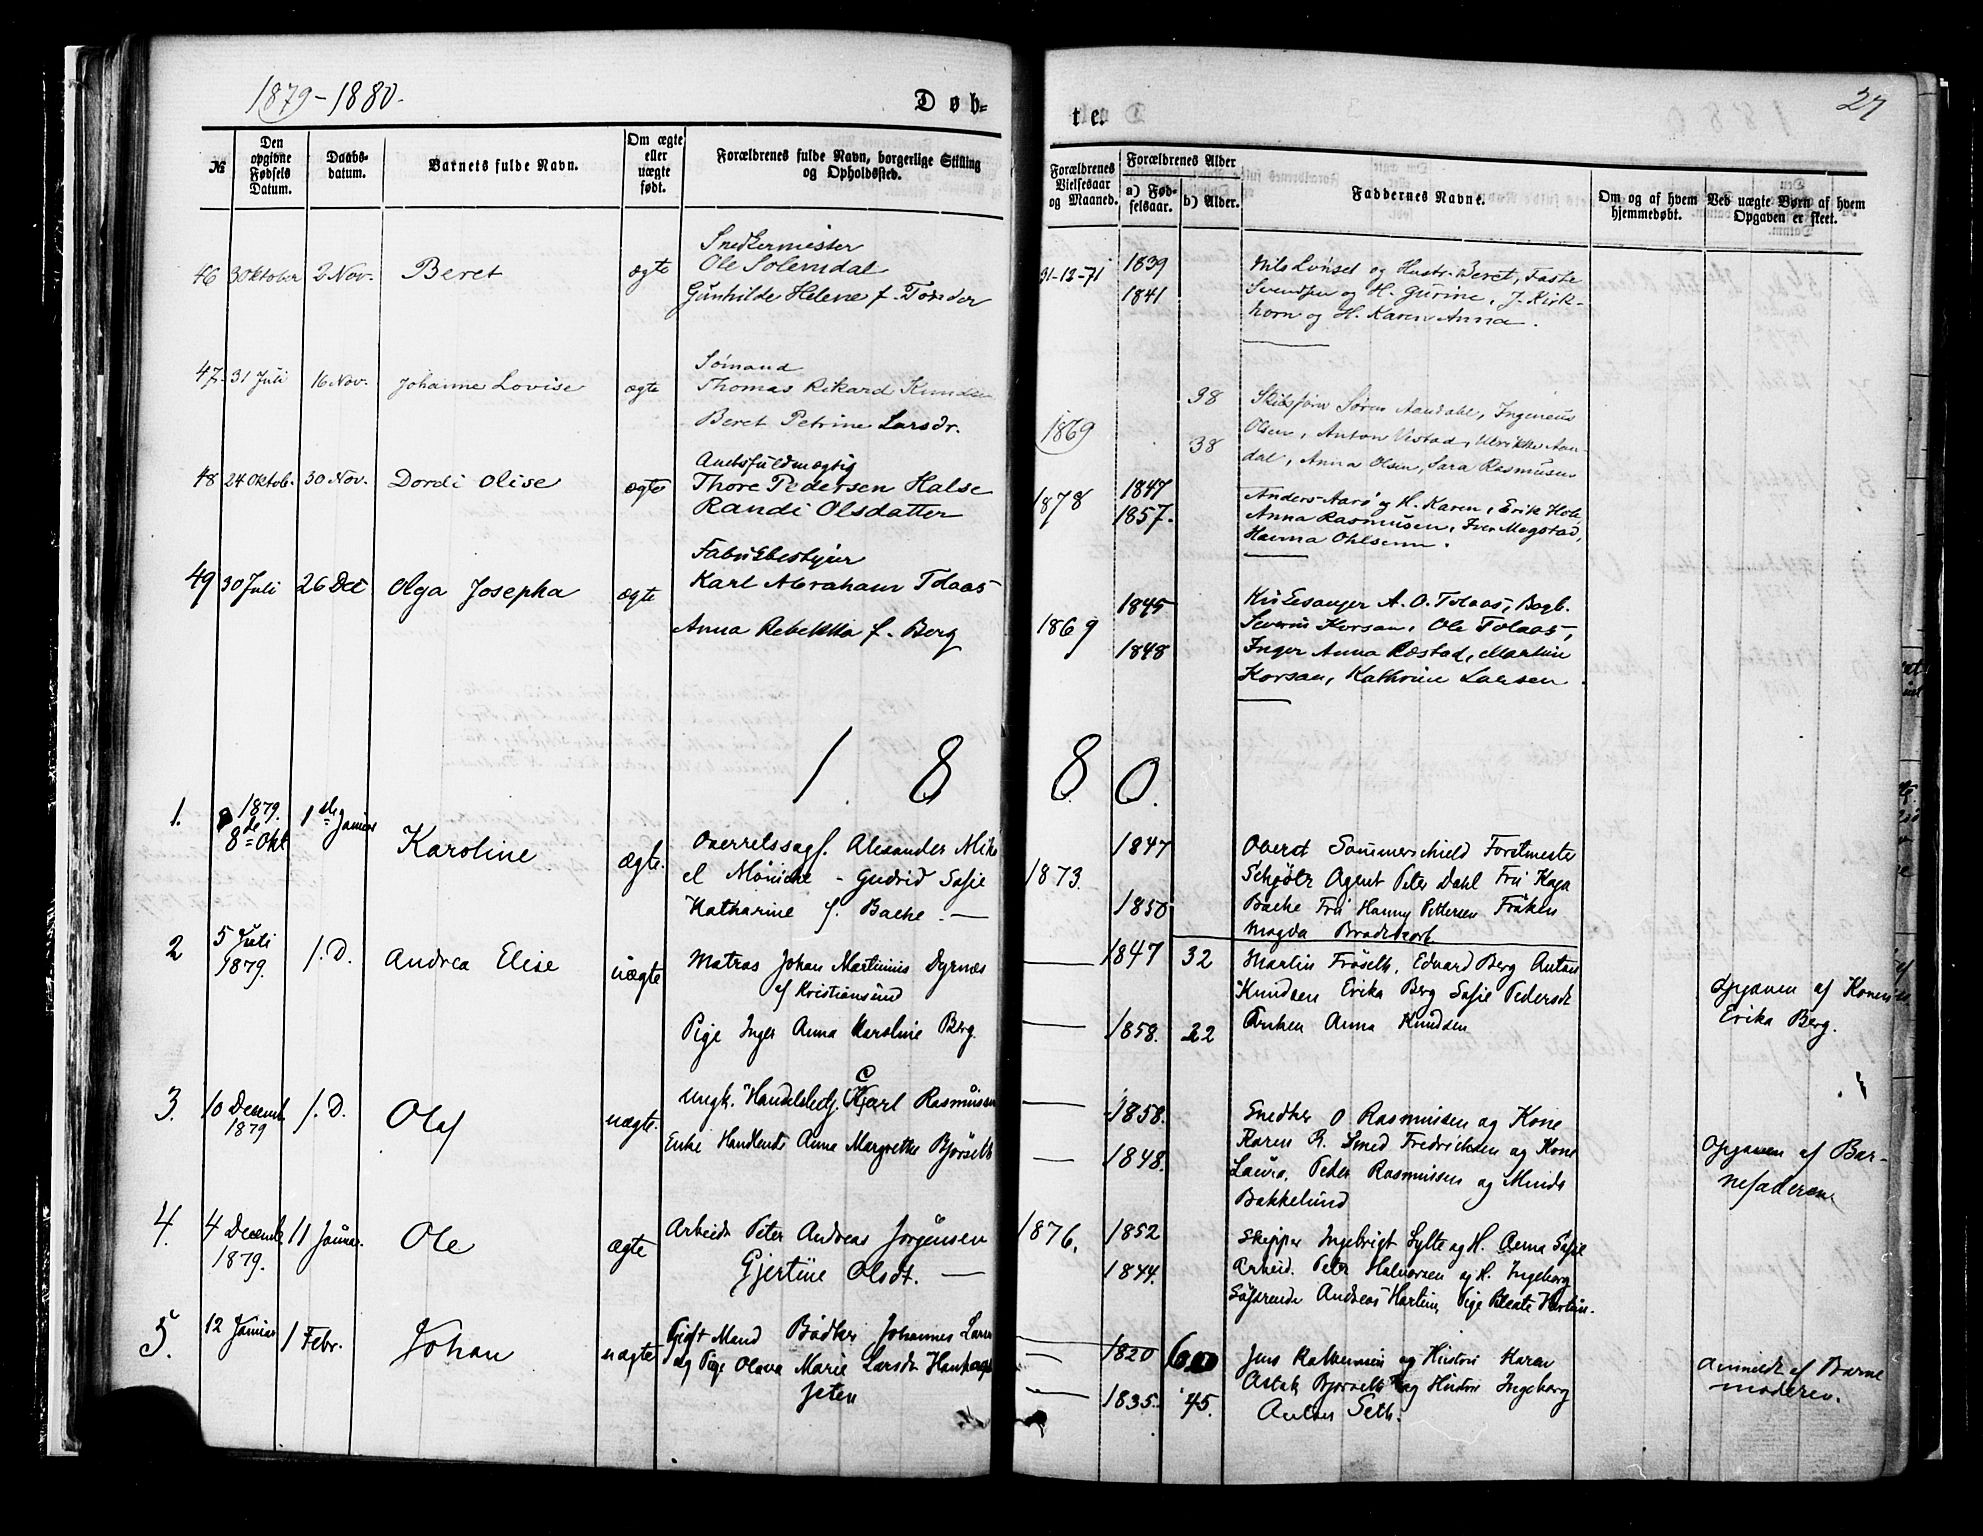 1879-1880.
Døb-
te.
27
№
Den opgivne Fødsels Datum.
Daabs-datum.
Barnets fulde Navn.
Om ægte eller uægte født.
Forældrenes fulde Navn, borgerlige Stilling og Opholdssted.
Forældrenes Vielsesaar og Maaned.
Forældrenes Alder
a) Fød-selsaar.
b) Alder.
Faddernes Navne.
Om og af hvem hjemmedøbt.
Ved uægte Børn af hvem Opgaven er skeet.
46 3 Oktober 2 Nov. Beret ægte
Snedkermester
Ole Solemdal
Gunhilde Helene f. Tønder
31-12-71 1839
1841
Nils Lønset og Hustr. Beret, Faste
Svendsen og H. Gurine, J. Kirk-
horn og H. Karen Anna.
47. 31 Juli 16 Nov. Johanne Lovise ægte
Sømand
Thomas Rikard Knudsen
Beret Petrine Larsdr.
1869
38
38
Skibsfører Søren Aandahl, Ingenius
Olsen, Anton Vistad, Ulrikke Aan-
dal, Anna Olsen, Sara Rasmusen
48 24 Oktob. 30 Nov. Dordi Olise ægte
Amtsfuldmægtig
Thore Pedersen Halse
Randi Olsdatter
1878
1847
1857.
Anders Aarø og H. Karen, Erik Hole
Anna Rasmusen, Iver Megstad,
Hanna Ohlsenn.
49 30 Juli 26 Dec Olga Josepha ægte
Fabrikbestyrer
Karl Abraham Tolaas
Anna Rebekka f. Berg
1869
1845
1848
Kirkesanger A. O. Tolaas, Bogb.
Severin Korsan, Ole Tolaas,
Inger Anna Røstad, Martin
Korsan, Kathrine Larsen
1 8 8 0.
1. 1879. 8de Okt 1ste Januar Karoline ægte.
Overretssagf. Alexander Mik
el Møniche - Gudrid Sofie
Katharine f. Bache. —
1873.
1847
1850
Oberst Sommerschield Forstmester
Schjøtz Agent Peter Dahl Fru Kaja
Bache Fru Hanny Pettersen Frøken
Magda Brodtkorb.
2 5 Juli 1879. 1. D. Andrea Elise uægte
Matros Johan Martinus Dyrnæs
af Kristiansund
Pige Inger Anna Karoline Berg.
— 1847 32
— 1858. 22
Martin Frøseth, Edvard Berg Anton
Knudsen Erika Berg Sofie Pedersdt
Enken Anna Knudsen
Opgaven af Konen
Erika Berg.
3. 10 Decemb. 1879 1. D. Olaf uægte.
Ungk. Handelsbetj. Carl Rasmussen
Enke Handlende Anna Margrethe Bjørseth
— 1858.
— 1848.
Snedker O Rasmussen og Kone
Karen R. Smed Fredriksen og Kone
Laura, Peder Rasmussen og Minda
Bakkelund
Opgaven af Bar-
nefaderen
4. 4 Decemb 1879. 11 Januar. Ole ægte
Arbeidr Peter Andreas Jørgensen
Gjertine Olsdt. —
1876.
1852
1844.
Skipper Ingebrigt Sylte og H. Anna Sofie
Arbeid. Peter Halvorsen og H. Ingeborg
Søfarende Andreas Hartin, Pige Beate Hartin.
5. 12 Januar 1 Febr. Johan uægte
Gift Mand Bødker Johannes Larsen
og Pige Olava Marie Larsdr
— 1820 60
— 1835. 45.
Jens og Hustru Karen
Astak Bjørseth og Hustru Ingeborg
Seth.
Anmeldt af Barne
moderen.